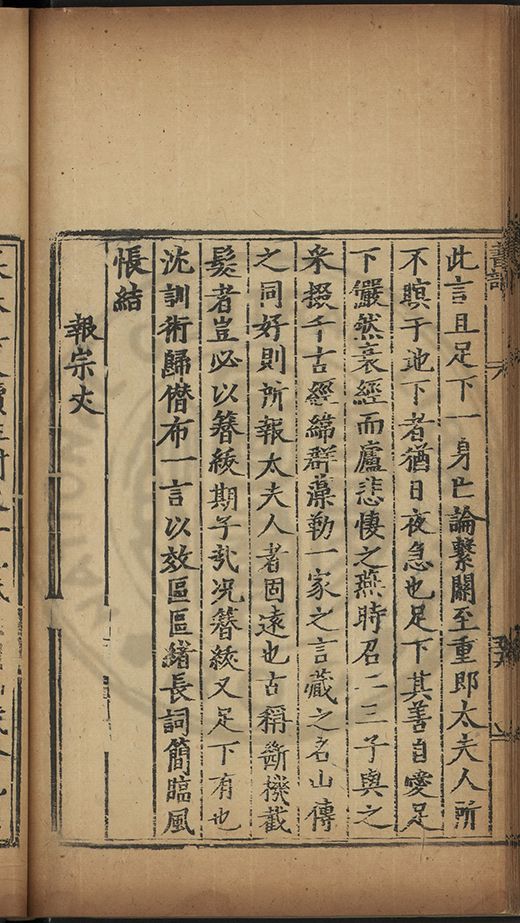 此言且足下一身亡論繫關至重即太夫人所
不瞑于地下者猶日夜急也足下其善自愛足
下儼然衰絰而廬悲悽之燕時召二三子與之
采掇千古經緯群藻勒一家之言藏之名山傳
之同好則所報太夫人者固遠也古稱斷機截
髮者豈必以簪紱期子哉况簪紱又足下有也
沈訓術歸僭布一言以效區區緒長詞簡臨風
悵結
報宗丈